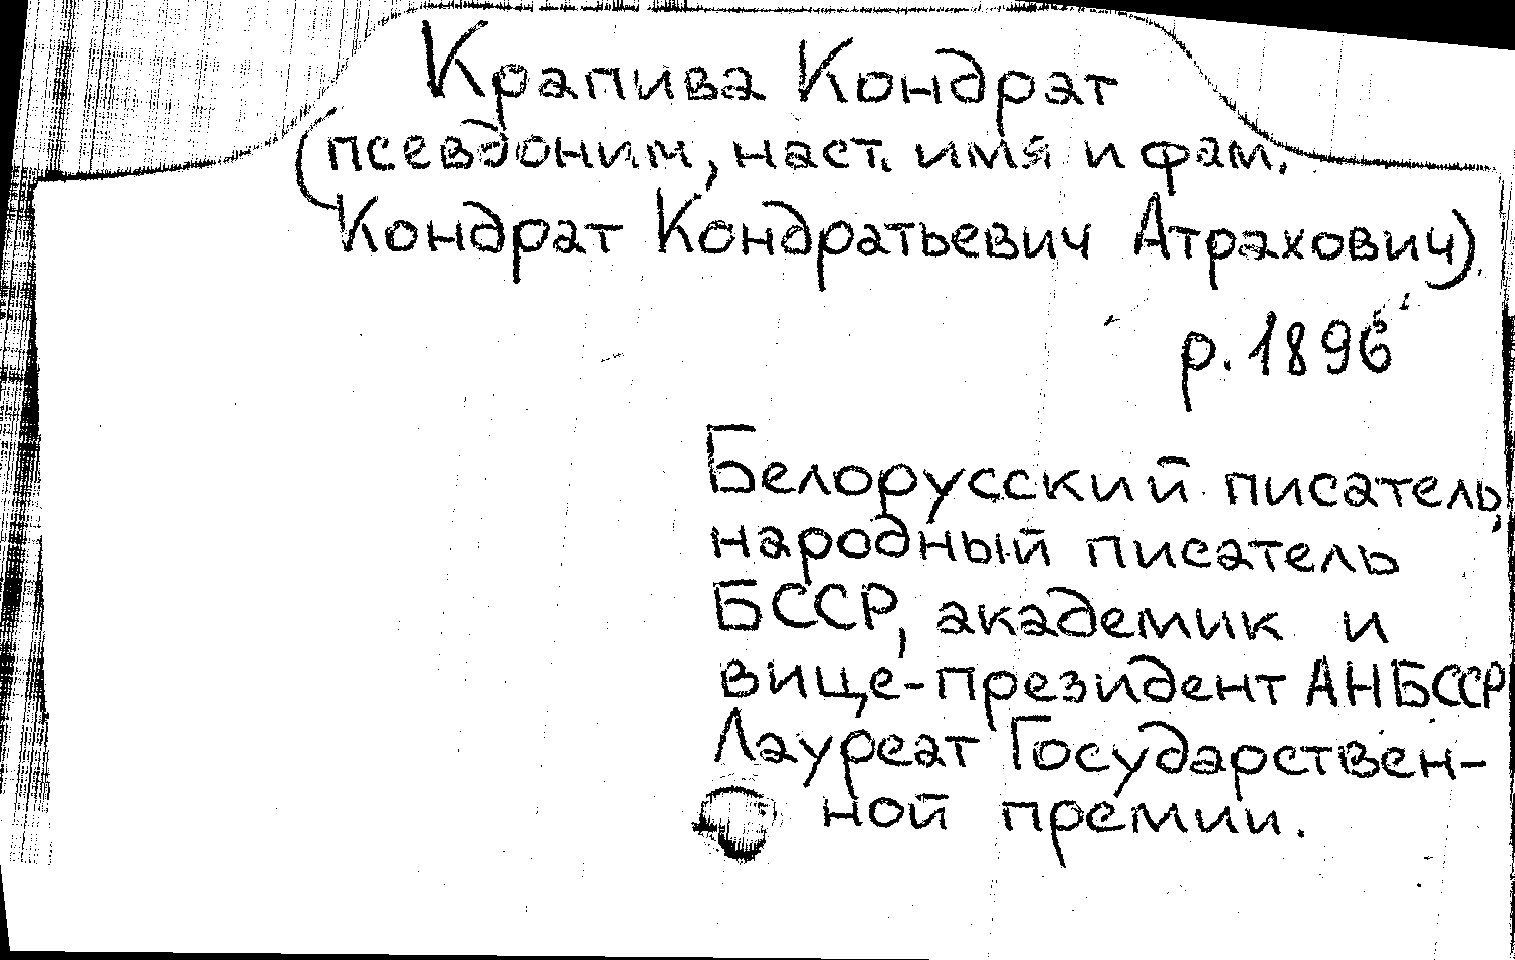 Крапива Кондрат
(псевдоним, наст. имя и фам.
Кондрат Кондратьевич Атрахович).
р. 1896
Белорусский писатель,
народный писатель
БССР, академик и
вице-президент АН БССР
Лауреат Государствен-
ной премии.